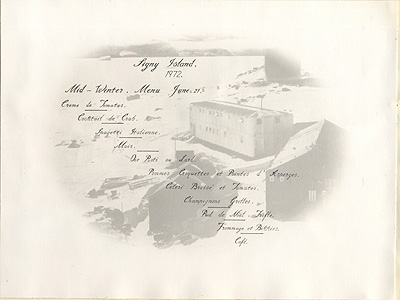 Signy Island.
1972.
Mid-Winter. Menu June. 21st
Creme de Tomates.
Cocktail de Crab.
Spagetti Italienne.
Oie Roti au Lard.
Pommes Croquettes et Pointes d'Asperges.
Celeri Braisé et Tomates.
Champignons Grilles.
Fromage et Biscuits.
Café.